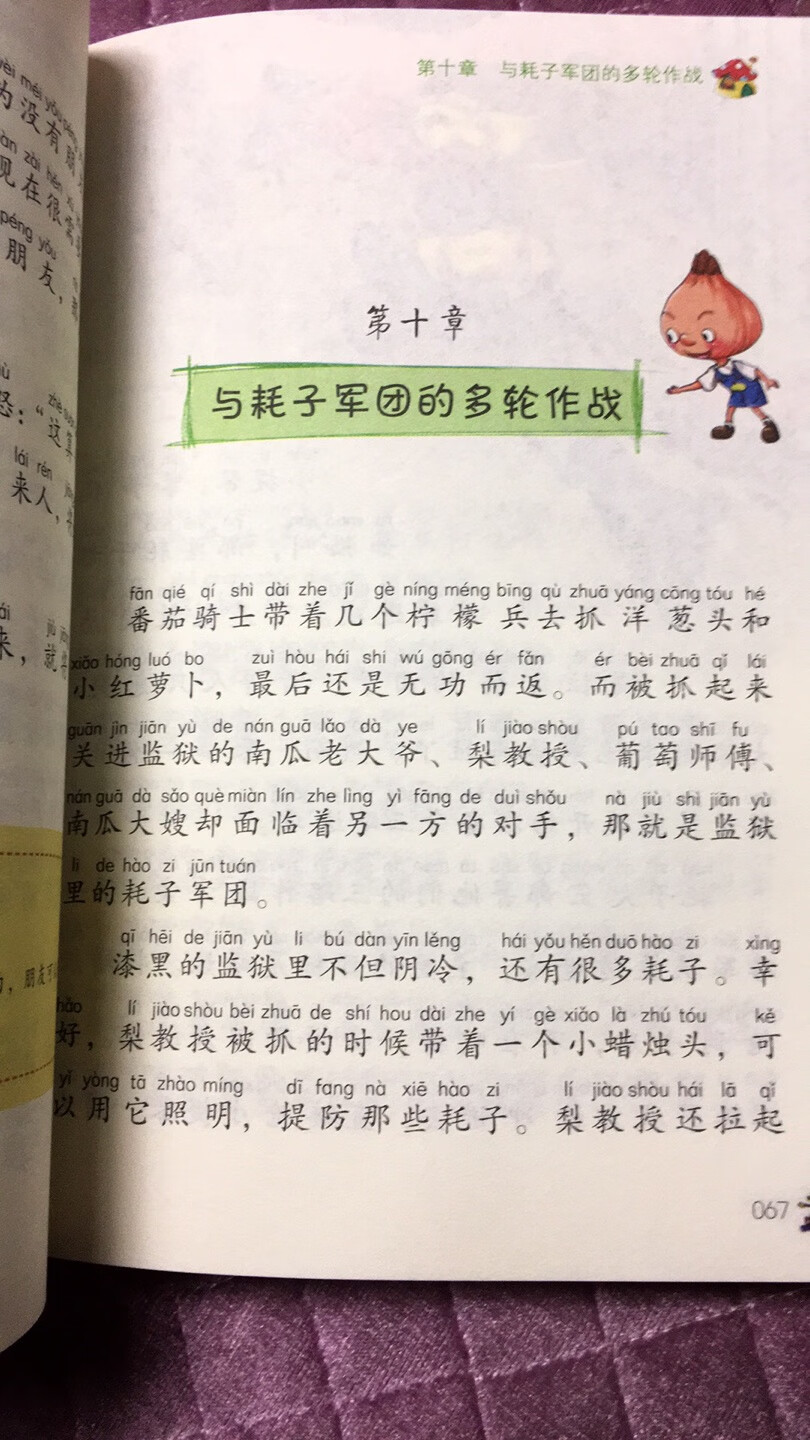 第十章 与耗子军团的多轮作战
第十章
与耗子军团的多轮作战
fān qié qí shì dài zhe jǐ gè níng méng bīng qù zhuā yáng cōng tóu hé
番茄骑士带着几个柠檬兵去抓洋葱头和
xiǎo hóng luó bo zuì hòu hái shi wú gōng ér fǎn ér bèi zhuā qǐ lái
小红萝卜，最后还是无功而返。而被抓起来
guān jìn jiān yù de nán guā lǎo dà ye lí jiào shòu pú tao shī fu
关进监狱的南瓜老大爷、梨教授、葡萄师傅、
nán guā dà sǎo què miàn lín zhe lìng yì fāng de duì shǒu nà jiù shì jiān yù
南瓜大嫂却面临着另一方的对手，那就是监狱
lǐ de hào zi jūn tuán
里的耗子军团。
qī hēi de jiān yù li bú dàn yīn lěng hái yǒu hěn duō hào zi xìng
漆黑的监狱里不但阴冷，还有很多耗子。幸
hǎo lí jiào shòu bèi zhuā de shí hou dài zhe yí gè xiǎo là zhú tóu kě
好，梨教授被抓的时候带着一个小蜡烛头，可
yǐ yòng tā zhào míng dī fang nà xiē hào zi lí jiào shòu hái lā qǐ
以用它照明，提防那些耗子。梨教授还拉起
067
没有
现在很
péng yǒu
朋友，
这算
lái rén
来人，
来，就
朋友可